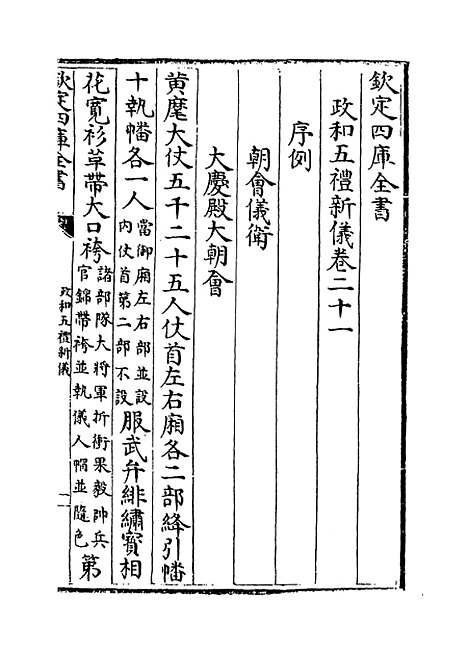 欽定四庫全書
政和五禮新儀卷二十一
序例
朝會儀衛
大慶殿大朝會
黄麾大仗五千二十五人仗首左右廂各二部絳引幡
十執幡各一人當御廂左右部並設内仗首第二部不設服武弁緋繡寶相
花寛衫草帶大口袴諸部隊大將軍折衝果毅帥兵官錦帶袴並執儀人帽並隨色第
欽定四庫全書
政和五禮新儀
一